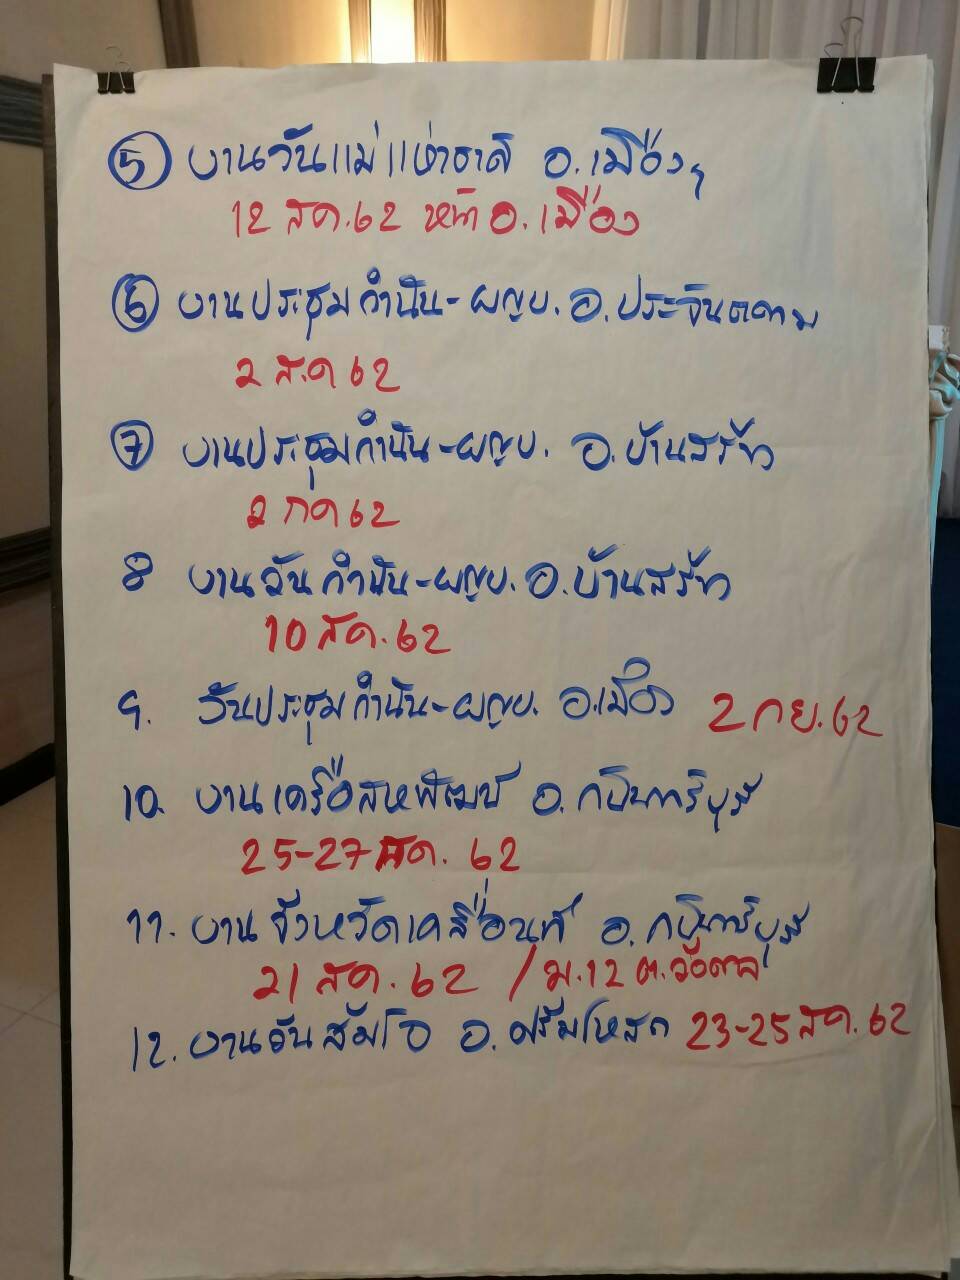 5 งานวันแม่แห่งชาติ อ.เมืองฯ
12 สค.62 หน้า อ.เมือง
6 งานประชุมกำนัน-ผญบ. อ.ประจันตคาม
2 ส.ค 62
7 งานประชุมกำนัน-ผญบ. อ.บ้านสร้าง
2 กค 62
8 งานวันกำนัน-ผญบ. อ.บ้านสร้าง
10 สค.62
9. วันประชุมกำนัน-ผญบ. อ.เมือง 2 กย.62
10. งานเครือสหพัฒน์ อ.กบินทร์บุรี
25-27 สค. 62
11. งานจังหวัดเคลื่อนที่ อ.กบินทร์บุรี
21 สค. 62 / ม.12 ต.วังตาล
12. งานวันส้มโอ อ.ศรีมโหสถ 23-25 สค. 62